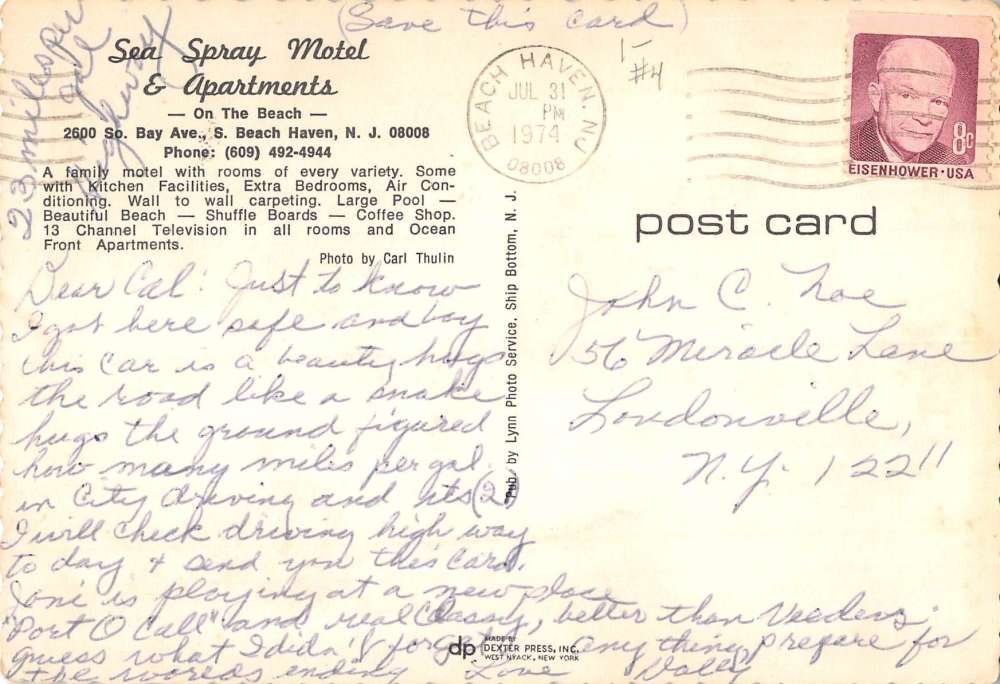 (Save this card)
1-
#4
23 miles per
gal
highway
Sea Spray Motel
& Apartments
— On The Beach —
2600 So. Bay Ave., S. Beach Haven, N. J. 08008
Phone: (609) 492-4944
A family motel with rooms of every variety. Some
with Kitchen Facilities, Extra Bedrooms, Air Con-
ditioning. Wall to wall carpeting. Large Pool —
Beautiful Beach — Shuffle Boards — Coffee Shop.
13 Channel Television in all rooms and Ocean
Front Apartments.
Photo by Carl Thulin
BEACH HAVEN, NJ
JUL 31
PM
1974
08008
8c
EISENHOWER·USA
post card
Dear Cal: Just to know
I got here safe and boy
this car is a beauty hugs
the road like a snake
hugs the ground figured
how many miles per gal
in City driving and its
I will check driving high way
to day + send you this card.
Joni is playing at a new place
"Port O Call" and real Classy, better than Veeders
guess what I didn't forget any thing prepare for
the worlds ending Love
Pub. by Lynn Photo Service, Ship Bottom, N. J.
John C. Noe
56 Miracle Lane
Loudonville,
N.Y. 12211
dp
MADE BY
DEXTER PRESS, INC.
WEST NYACK, NEW YORK